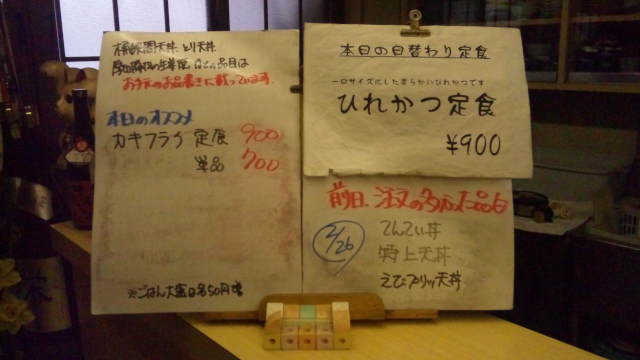 天丼 とり天丼
お手元のお品書きに載っています。
本日のオススメ
カキフライ 定食 900
単品 700
※ごはん大盛は各50円増
本日の日替わり定食
一口サイズにした柔らかいひれかつです
ひれかつ定食
¥900
前日、注文の多かった品目
2/26
てんてい丼
特上天丼
えびプリッ天丼